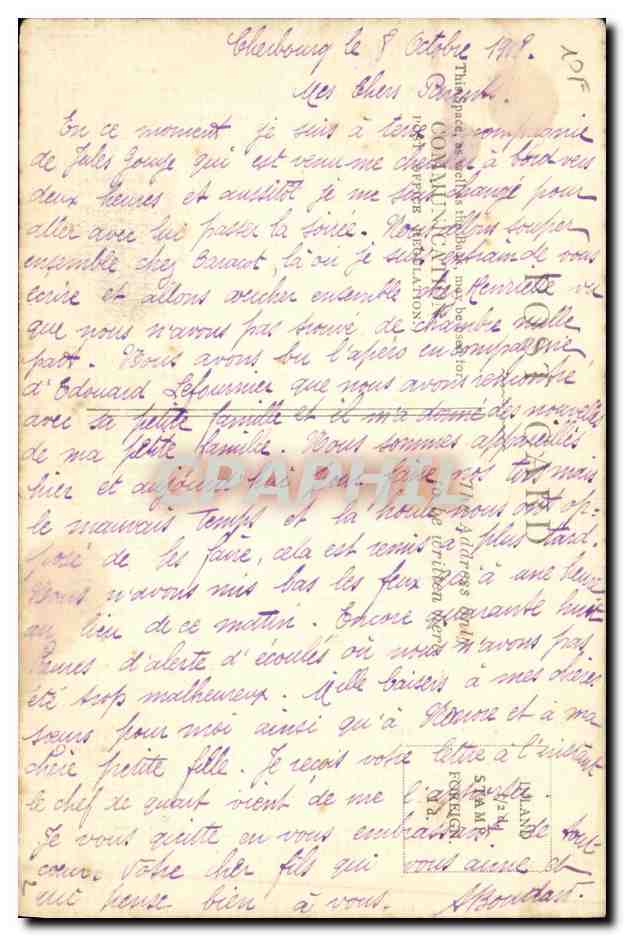 Cherbourg le 8 Octobre 1908.
10F
Mes Chers Parents.
En ce moment je suis à terre compagnie
de Jules qui est venu me chercher à bord vers
deux heures et aussitôt je me suis changé pour
aller avec lui passer la soirée. Nous allons souper
ensemble chez là où je suis de vous
écrire et allons coucher ensemble chez Henriette vu
que nous n'avons pas trouvé de chambre nulle
part. Nous avons bu l'apéro en compagnie
d'Edouard Lefournier que nous avons rencontré
avec sa petite famille et il m'a donné des nouvelles
de ma petite famille. Nous sommes appareillés
hier et aujourd'hui pour faire nos tirs mais
le mauvais temps et la houle nous ont op-
posé de les faire, cela est remis à plus tard.
Nous n'avons mis bas les feux qu'à une heure
au lieu de ce matin. Encore quarante huit
heures d'alerte d'écoulés où nous n'avons pas
été trop malheureux. Mille baisers à mes chères
sœurs pour moi ainsi qu'à et à ma
chère petite fille. Je reçois votre lettre à l'instant
le chef de quart vient de me l'apporter.
Je vous quitte en vous embrassant de tout
cœur. Votre cher fils qui vous aime et
qui pense bien à vous.
POST CARD
This Space, as well as the Back, may be used for
COMMUNICATION.
POST OFFICE REGULATION.
The Address Only
to be written here
INLAND
1/2 d.
STAMP
FOREIGN.
1 d.
CPAPHIL